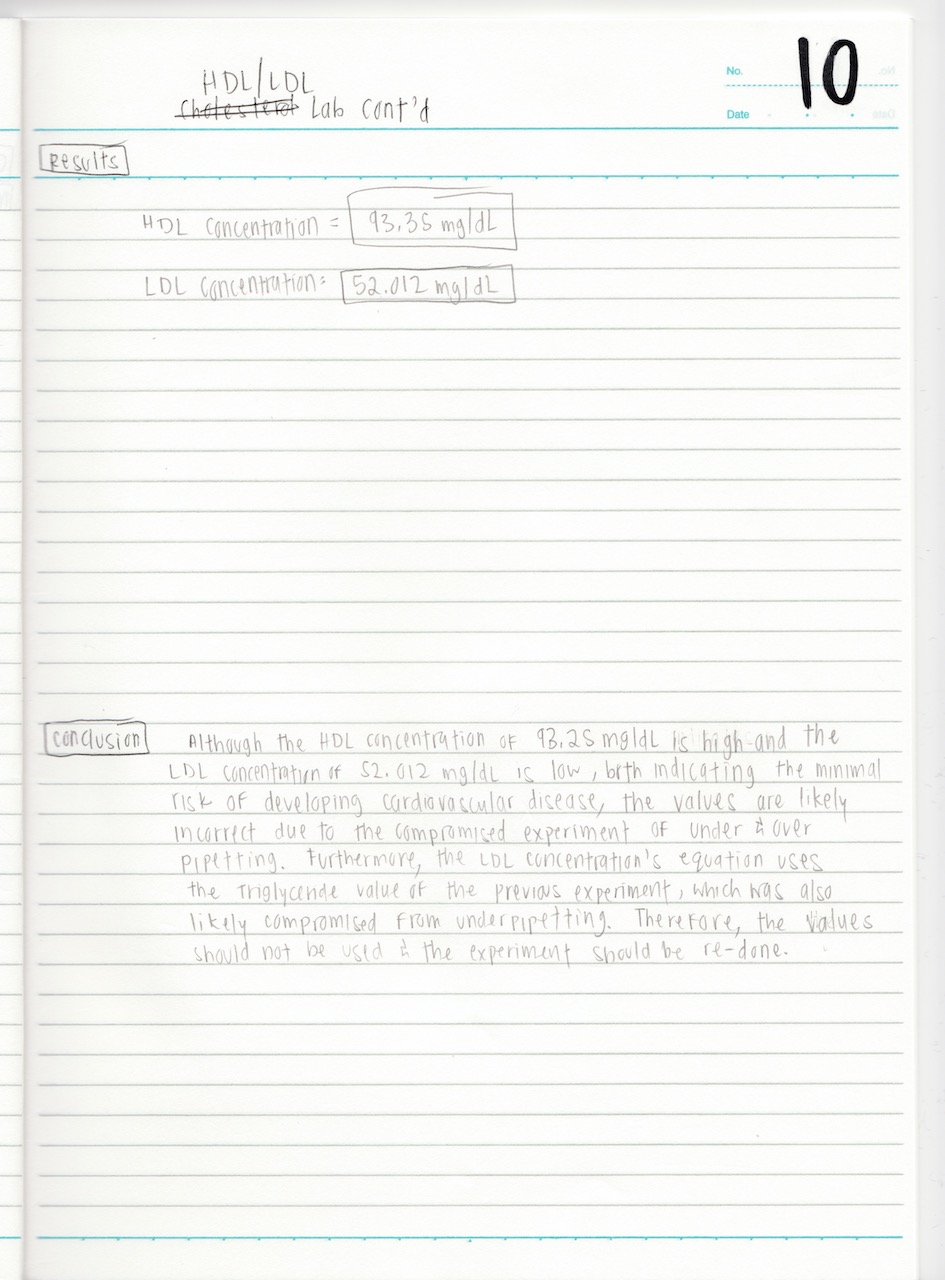 10
No.
Date
HDL/LDL
Cholesterol Lab cont'd
Results
HDL concentration = 93.35 mg/dL
LDL concentration: 52.012 mg/dL
conclusion
Although the HDL concentration of 93.25 mg/dL is high and the
LDL concentration of 52.012 mg/dL is low, both indicating the minimal
risk of developing cardiovascular disease, the values are likely
incorrect due to the compromised experiment of under & over
pipetting. Furthermore, the LDL concentration's equation uses
the Triglyceride value of the previous experiment, which was also
likely compromised from underpipetting. Therefore, the values
should not be used & the experiment should be re-done.